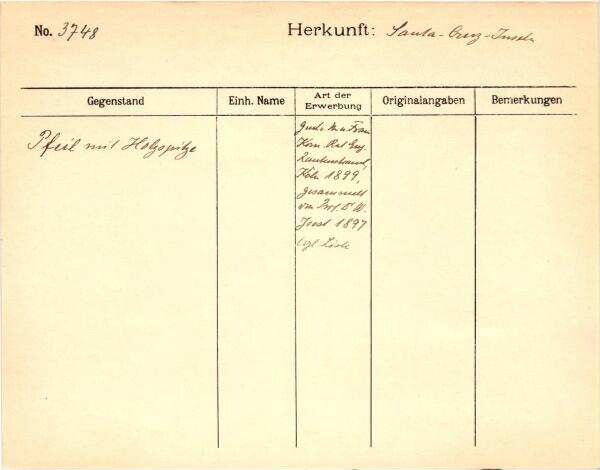 No. 3748
Herkunft: Santa-Cruz-Inseln
Gegenstand
Einh. Name
Art der
Erwerbung
Originalangaben
Bemerkungen
Pfeil mit Holzspitze
Gesch. v. Frau
Kom. Rat Eug.
Rautenstrauch,
Köln 1899,
gesammelt
von Prof. Dr W.
Joest 1897
vgl. Liste